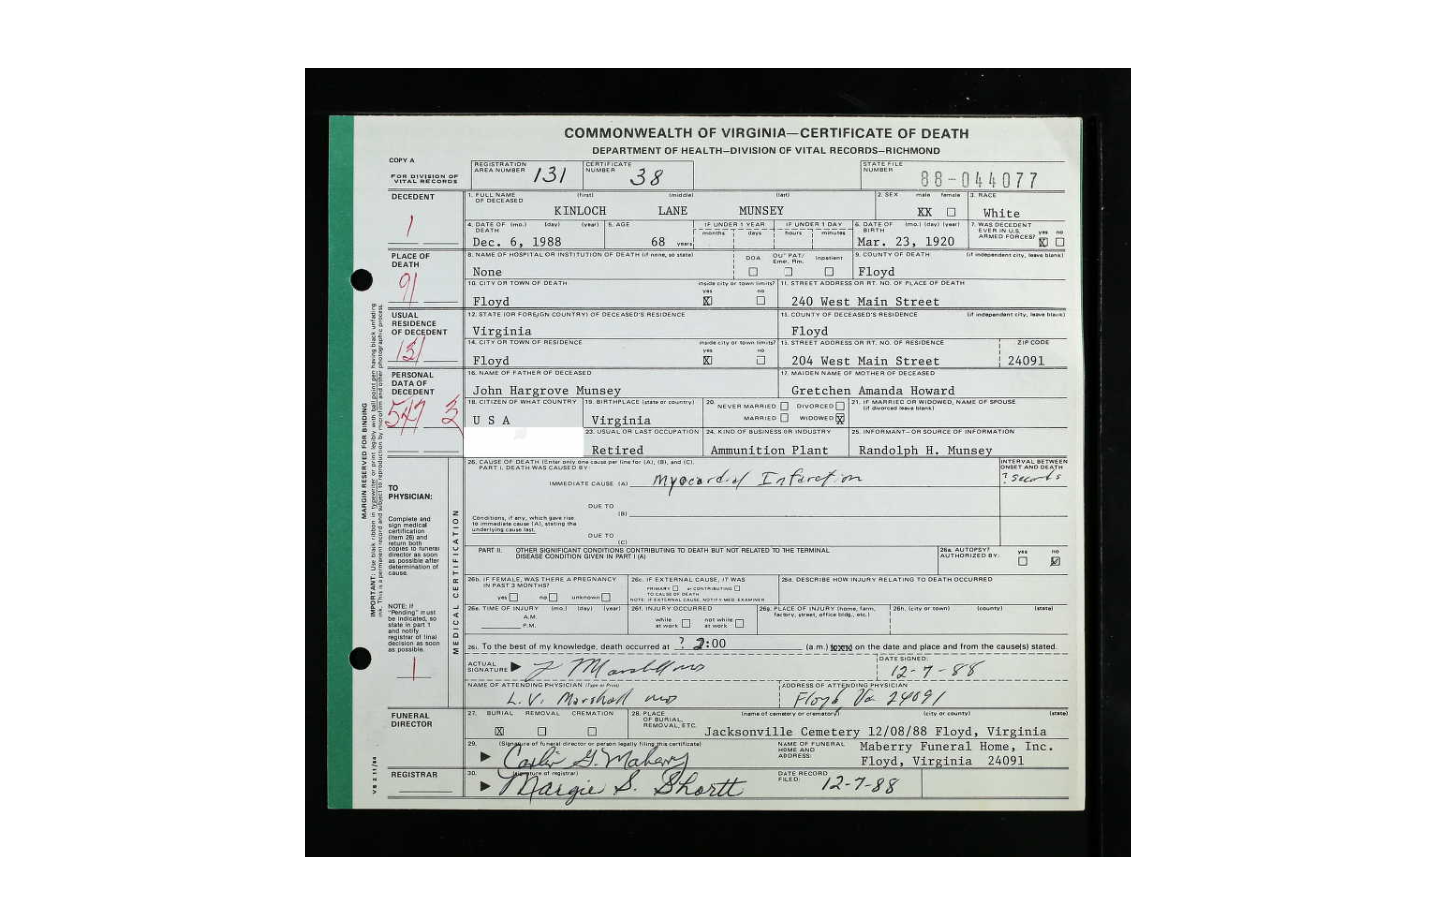 COMMONWEALTH OF VIRGINIA—CERTIFICATE OF DEATH
DEPARTMENT OF HEALTH—DIVISION OF VITAL RECORDS—RICHMOND
COPY A
FOR DIVISION OF VITAL RECORDS
REGISTRATION AREA NUMBER 131
CERTIFICATE NUMBER 38
STATE FILE NUMBER 88-044077
DECEDENT
1
1. FULL NAME OF DECEASED (first) (middle) (last)
KINLOCH LANE MUNSEY
2. SEX male female
XX
3. RACE
White
4. DATE OF DEATH (mo.) (day) (year)
Dec. 6, 1988
5. AGE
68 years
IF UNDER 1 YEAR months days
IF UNDER 1 DAY hours minutes
6. DATE OF BIRTH (mo.) (day) (year)
Mar. 23, 1920
7. WAS DECEDENT EVER IN U.S. ARMED FORCES? yes no
X
PLACE OF DEATH
91
8. NAME OF HOSPITAL OR INSTITUTION OF DEATH (if none, so state)
None
DOA OUT PAT/ Eme. Rm. Inpatient
9. COUNTY OF DEATH (if independent city, leave blank)
Floyd
10. CITY OR TOWN OF DEATH inside city or town limits? yes no
Floyd X
11. STREET ADDRESS OR RT. NO. OF PLACE OF DEATH
240 West Main Street
USUAL RESIDENCE OF DECEDENT
131
12. STATE (OR FOREIGN COUNTRY) OF DECEASED'S RESIDENCE
Virginia
13. COUNTY OF DECEASED'S RESIDENCE (if independent city, leave blank)
Floyd
14. CITY OR TOWN OF RESIDENCE inside city or town limits? yes no
Floyd X
15. STREET ADDRESS OR RT. NO. OF RESIDENCE
204 West Main Street
ZIP CODE
24091
PERSONAL DATA OF DECEDENT
547 3
16. NAME OF FATHER OF DECEASED
John Hargrove Munsey
17. MAIDEN NAME OF MOTHER OF DECEASED
Gretchen Amanda Howard
18. CITIZEN OF WHAT COUNTRY
U S A
19. BIRTHPLACE (state or country)
Virginia
20. NEVER MARRIED DIVORCED
MARRIED WIDOWED X
21. IF MARRIED OR WIDOWED, NAME OF SPOUSE
(if divorced leave blank)
23. USUAL OR LAST OCCUPATION
Retired
24. KIND OF BUSINESS OR INDUSTRY
Ammunition Plant
25. INFORMANT—OR SOURCE OF INFORMATION
Randolph H. Munsey
26. CAUSE OF DEATH (Enter only one cause per line for (A), (B), and (C).
PART I. DEATH WAS CAUSED BY:
INTERVAL BETWEEN ONSET AND DEATH
IMMEDIATE CAUSE (A) Myocardial Infarction ? seconds
DUE TO (B)
Conditions, if any, which gave rise to immediate cause (A), stating the underlying cause last.
DUE TO (C)
PART II. OTHER SIGNIFICANT CONDITIONS CONTRIBUTING TO DEATH BUT NOT RELATED TO THE TERMINAL
DISEASE CONDITION GIVEN IN PART I (A)
26a. AUTOPSY? AUTHORIZED BY: yes no
26b. IF FEMALE, WAS THERE A PREGNANCY IN PAST 3 MONTHS?
yes no unknown
26c. IF EXTERNAL CAUSE, IT WAS
PRIMARY or CONTRIBUTING
TO CAUSE OF DEATH
NOTE: IF EXTERNAL CAUSE, NOTIFY MED. EXAMINER
26d. DESCRIBE HOW INJURY RELATING TO DEATH OCCURRED
26e. TIME OF INJURY (mo.) (day) (year)
A.M.
P.M.
26f. INJURY OCCURRED
while at work not while at work
26g. PLACE OF INJURY (home, farm, factory, street, office bldg., etc.)
26h. (city or town) (county) (state)
26i. To the best of my knowledge, death occurred at ? 2:00 (a.m.) on the date and place and from the cause(s) stated.
ACTUAL SIGNATURE
DATE SIGNED:
12-7-88
NAME OF ATTENDING PHYSICIAN (Type or Print)
L.V. Marshall MD
ADDRESS OF ATTENDING PHYSICIAN
Floyd Va 24091
TO PHYSICIAN:
Complete and sign medical certification (item 26) and return both copies to funeral director as soon as possible after determination of cause.
NOTE: If "Pending" must be indicated, so state in part 1 and notify registrar of final decision as soon as possible.
1
MEDICAL CERTIFICATION
MARGIN RESERVED FOR BINDING
FUNERAL DIRECTOR
27. BURIAL REMOVAL CREMATION
X
28. PLACE OF BURIAL, REMOVAL, ETC. (name of cemetery or crematory) (city or county) (state)
Jacksonville Cemetery 12/08/88 Floyd, Virginia
29. (Signature of funeral director or person legally filing this certificate)
NAME OF FUNERAL HOME AND ADDRESS:
Maberry Funeral Home, Inc.
Floyd, Virginia 24091
REGISTRAR
30. (signature of registrar)
Margie S. Shortt
DATE RECORD FILED:
12-7-88
VS 2 11/84